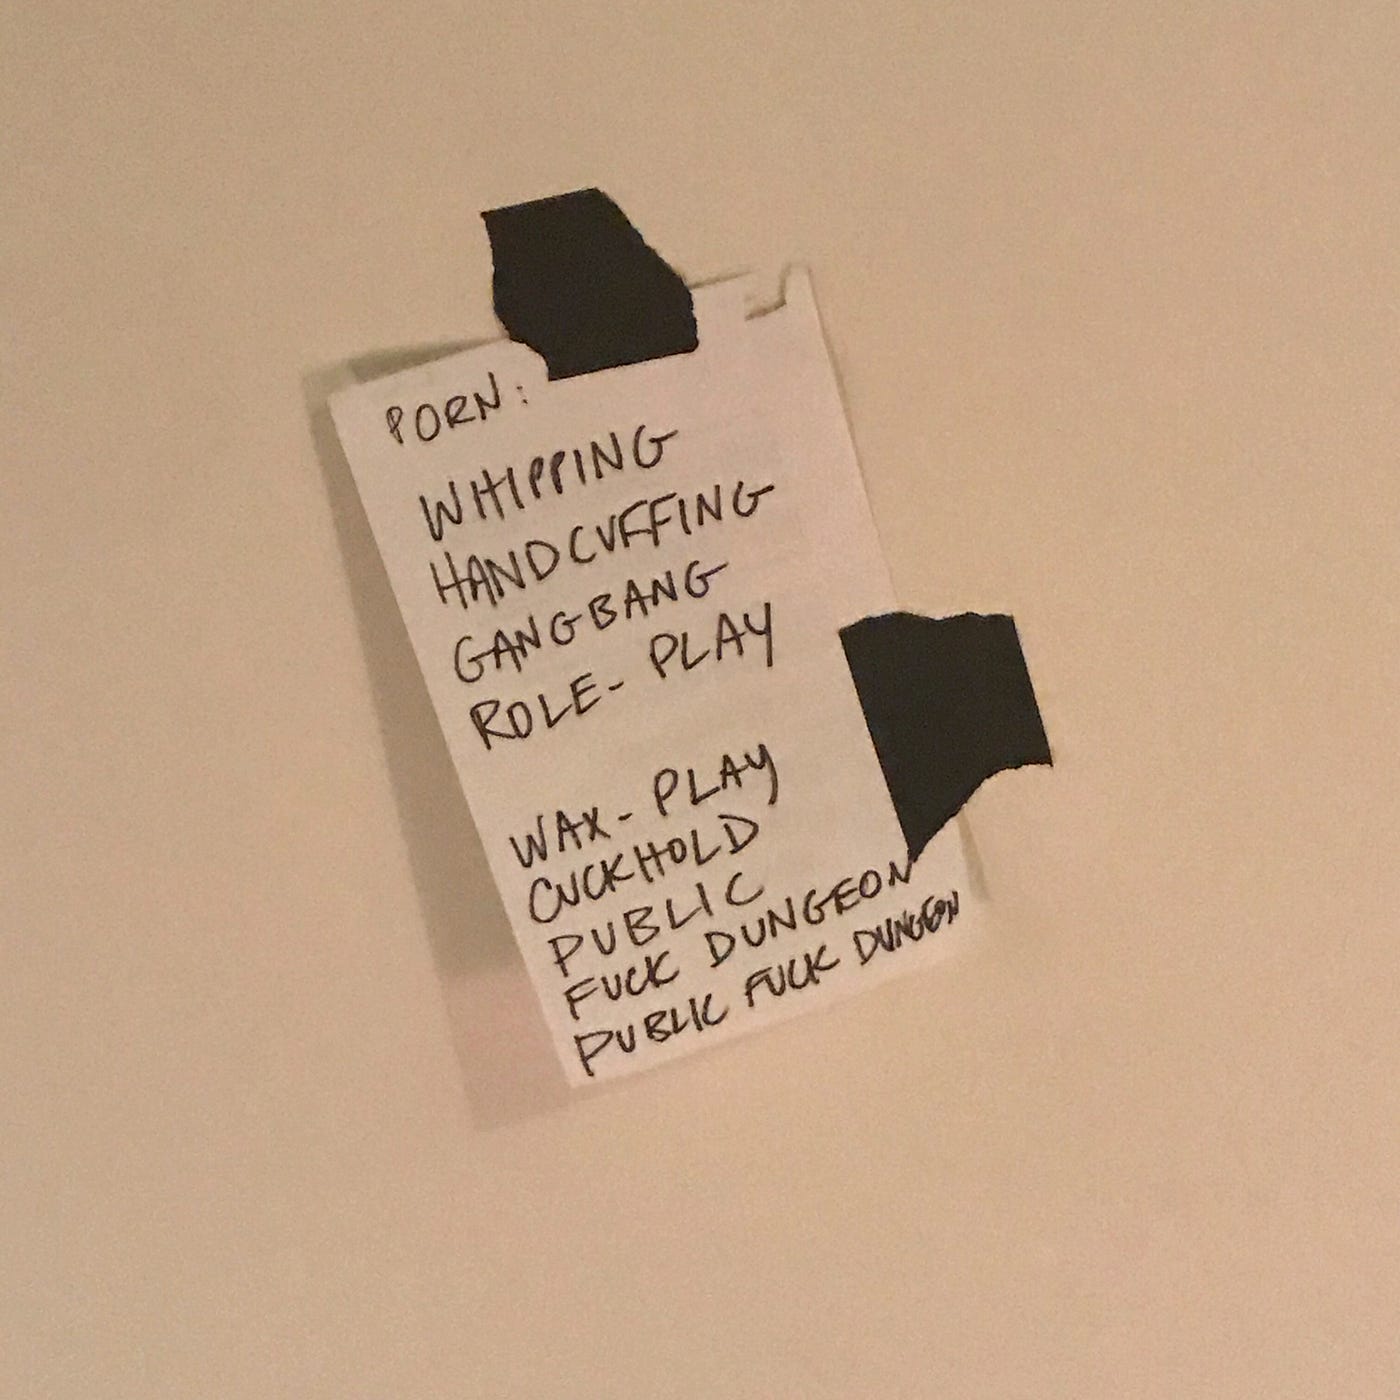 PORN:
WHIPPING
HANDCUFFING
GANGBANG
ROLE-PLAY
WAX-PLAY
CUCKHOLD
PUBLIC
FUCK DUNGEON
PUBLIC FUCK DUNGEON